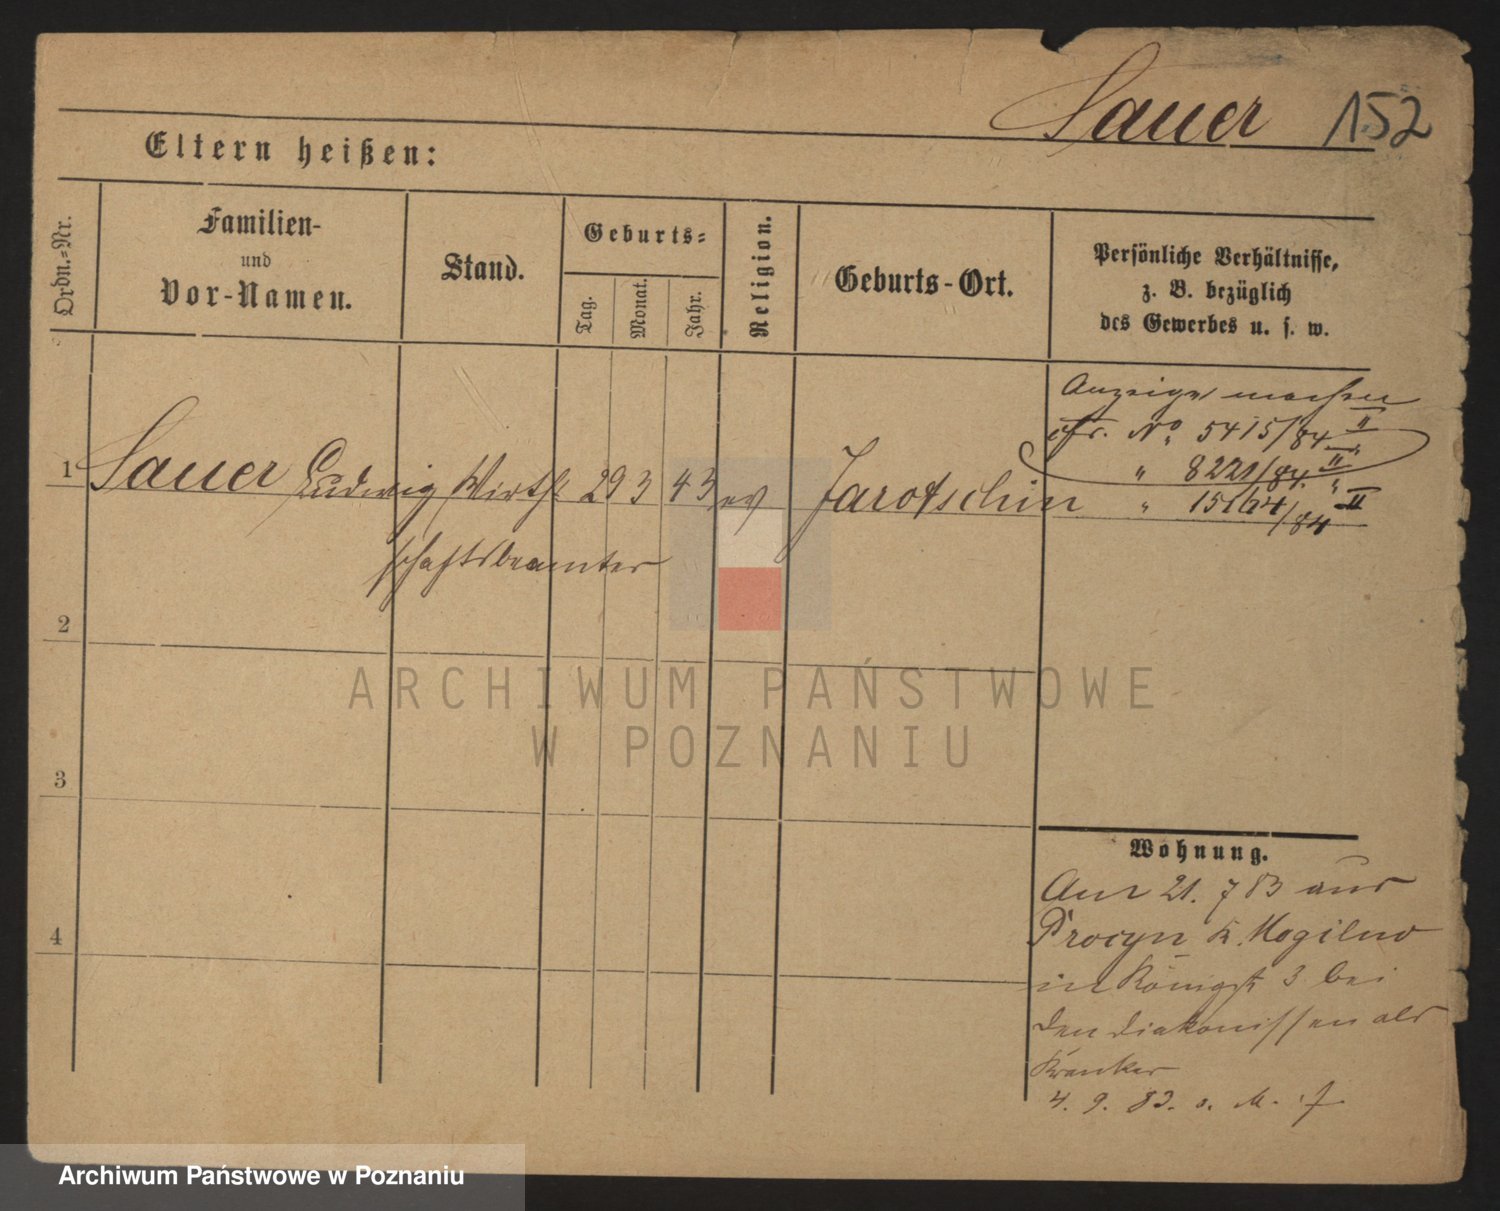 Sauer 152
Eltern heißen:
Ordn.-Nr.
Familien-
und
Vor-Namen.
Stand.
Geburts-
Tag.
Monat.
Jahr.
Religion.
Geburts-Ort.
Persönliche Verhältnisse,
z. B. bezüglich
des Gewerbes u. s. w.
Anzeige machen
cfr. No 5415/84 II
" 8221/84 II
" 15164/84 II
1 Sauer Ludwig Wirth 29 3 43 ev Jarotschin
schaftsbeamter
2
3
4
Wohnung.
Am 21. 7 83 aus
Procyn K. Mogilno
in Königstr 3 bei
den Diakonissen als
Kranker
4. 9. 83. o. M.
ARCHIWUM PAŃSTWOWE
W POZNANIU
Archiwum Państwowe w Poznaniu